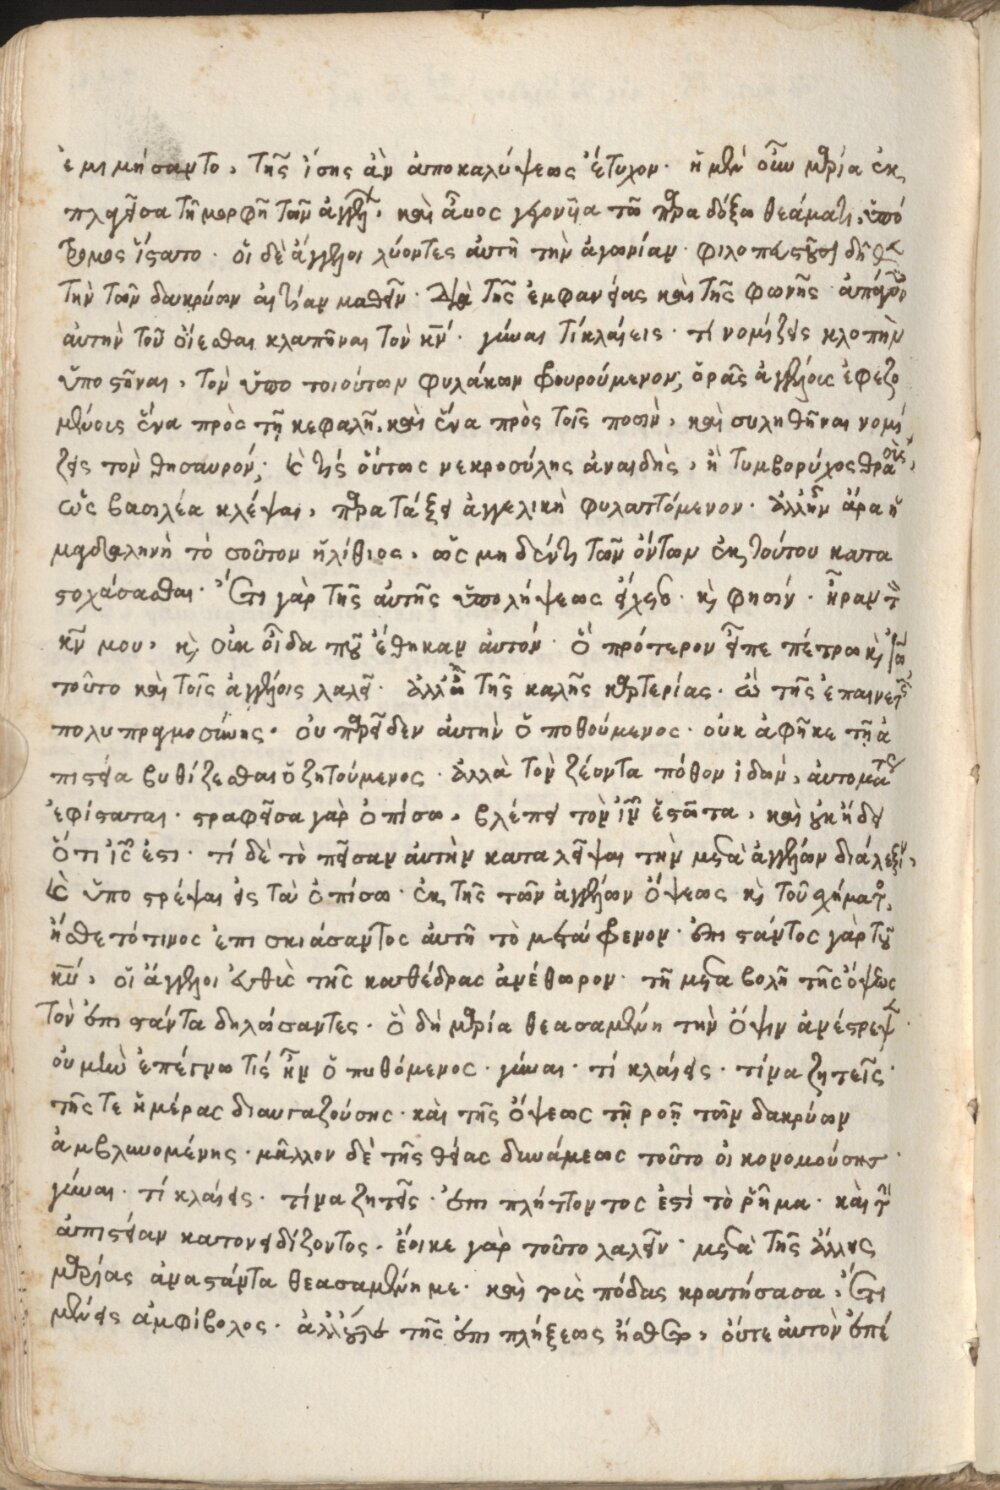 ἐμιμήσαντο, τῆς ἴσης ἂν ἀποκαλύψεως ἔτυχον· ἡ μὲν οὖν μαρία ἐκ
πλαγεῖσα τῇ μορφῇ τῶν ἀγγέλων, καὶ ἄνους γεγονυῖα τῶ παραδόξω θεάματι, ὑπό
τρομος ἵστατο· οἱ δὲ ἄγγελοι λύοντες αὐτῆ τὴν ἀγωνίαν·
τὴν τῶν δακρύων αἰτίαν μαθεῖν· διὰ τῆς ἐμφανείας καὶ τῆς φωνῆς
αὐτὴν τοῦ οἴεσθαι κλαπῆναι τὸν κν· γύναι τί κλαίεις· τί νομίζεις κλοπὴν
ὑποστῆναι, τὸν ὑπο τοιούτων φυλάκων φρουρούμενον; ὁρᾶς ἀγγέλοις ἐφεζο
μένοις ἕνα πρὸς τῇ κεφαλῇ, καὶ ἕνα πρὸς τοῖς ποσὶν, καὶ συληθῆναι νομί
ζεις τὸν θησαυρόν; καὶ τίς οὕτως νεκροσύλης ἀναιδὴς, ἢ τυμβορύχος θρασὺς,
ὡς βασιλέα κλέψαι, παρατάξει ἀγγελικῇ φυλαττόμενον· ἀλλ' ἦν ἄρα ἡ
μαγδαληνὴ τὸ σοῦτον ἠλίθιος, ὡς μηδέν τι τῶν ὄντων ἐκ τούτου κατα
στοχάσασθαι· ἔτι γὰρ τῆς αὐτῆς ὑπολήψεως ἔχεται· κ φησίν· ἦραν τὸν
κν μου, κ οὐκ οἶδα ποῦ ἔθηκαν αὐτόν· ὃ πρότερον εἶπε πέτρω κ ἰω
τοῦτο καὶ τοῖς ἀγγέλοις λαλεῖ· ἀλλ' ὢ τῆς καλῆς καρτερίας· ὢ τῆς ἐπαινετῆς
πολυπραγμοσύνης· οὐ παρεῖδεν αὐτὴν ὁ ποθούμενος· οὐκ ἀφῆκε τῇ ἀ
πιστεία βυθίζεσθαι ὁ ζητούμενος· ἀλλὰ τὸν ζέοντα πόθον ἰδὼν, αὐτομάτως
ἐφίσταται· στραφεῖσα γὰρ ὀπίσω, βλέπει τὸν ιν ἑστῶτα, καὶ οὐκ ἤδει
ὅτι ις ἐστι· τί δὲ τὸ πεῖσαν αὐτὴν καταλεῖψαι τὴν μετὰ ἀγγέλων διάλεξιν,
καὶ ὑποστρέψαι εἰς τὰ ὀπίσω· ἐκ τῆς τῶν ἀγγέλων ὄψεως κ τοῦ σχήματος,
ἤσθετό τινος ἐπισκιάσαντος αὐτῆ τὸ μετάφρενον· ἐπιστάντος γὰρ τοῦ
κυ, οἱ ἄγγελοι εὐθὺς τῆς καθέδρας ἀνέθωρον· τῇ μεταβολῇ τῆς ὄψεως
τὸν ἐπιστάντα δηλώσαντες· ὃ δὴ μαρία θεασαμένη τὴν ὄψιν ἀνέστρεψεν·
οὐ μὴν ἐπέγνω τίς ἦν ὁ πυθόμενος· γύναι· τί κλαίεις· τίνα ζητεῖς·
τῆς τε ἡμέρας διαυγαζούσης· καὶ τῆς ὄψεως τῇ ροῇ τῶν δακρύων
ἀμβλυνομένης· μᾶλλον δὲ τῆς θείας δυνάμεως τοῦτο οἰκονομούσης·
γύναι· τί κλαίεις· τίνα ζητεῖς· ἐπιπλήττοντος ἐστὶ τὸ ῥῆμα· καὶ τὴν
ἀπιστείαν κατονειδίζοντος· ἔοικε γὰρ τοῦτο λαλεῖν· μετὰ τῆς ἄλλης
μαρίας ἀναστάντα θεασαμένη με· καὶ τοὺς πόδας κρατήσασα, ἔτι
μένεις ἀμφίβολος· ἀλλ' οὔτε τῆς ἐπιπλήξεως ἤσθετο, οὔτε αὐτὸν ἐπέ